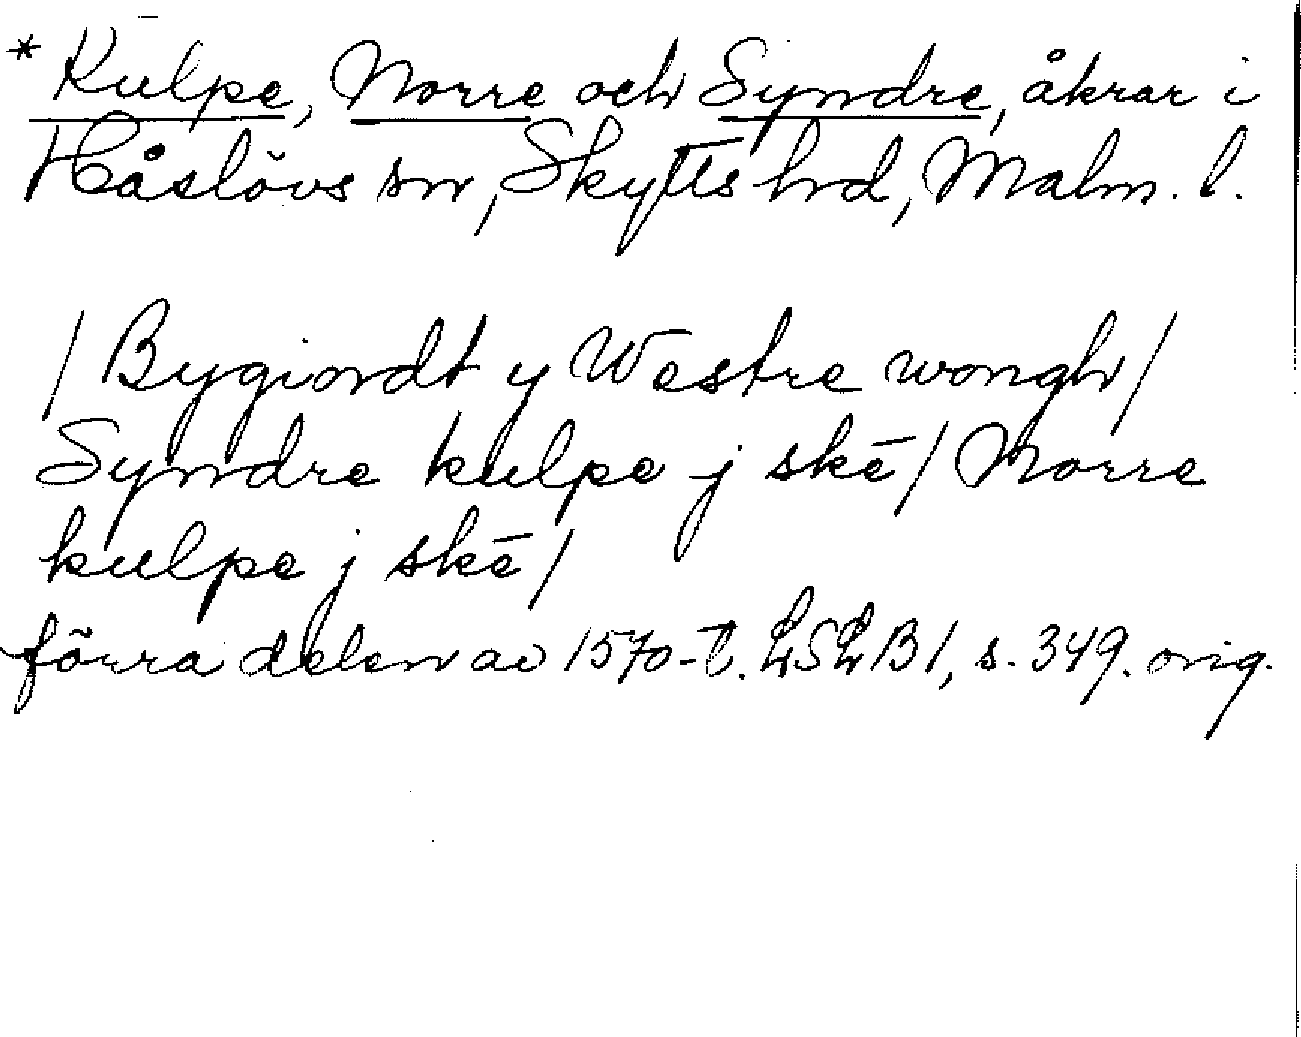 * Kulpe, Norre och Syndre, åkrar i
Håslövs sn, Skytts hrd, Malm. l.
/ Bygiordt y Westre wongh /
Syndre kulpe j skē / Norre
kulpe j skē /
förra delen av 1570-t. LSLB1, s. 349. orig.